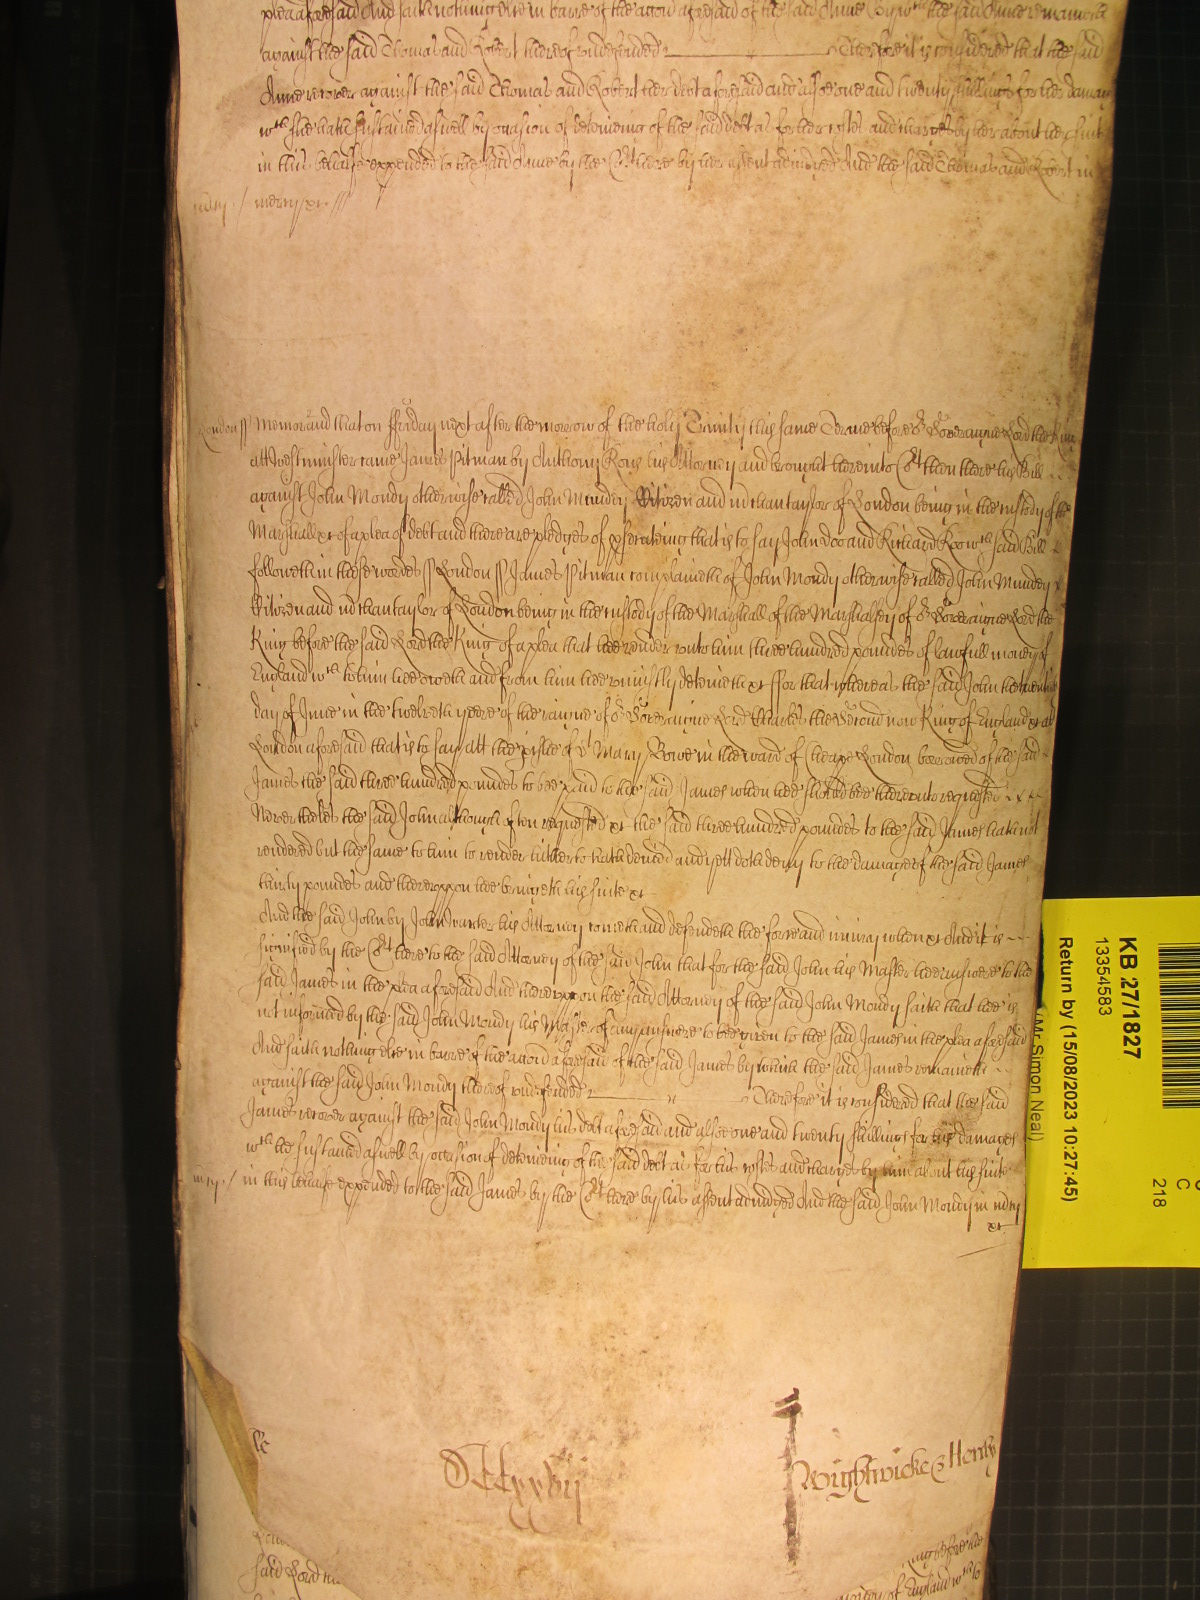 plea aforesaid And saith nothing else in barre of the accōn aforesaid of the said Anne by wch the said Anne remaineth
against the said Thomas and Robert thereof undefended Therefore it is considered that the said
Anne recover against the said Thomas and Robert her debt aforesaid and alsoe one and twenty shillings for her damages
wch shee hath sustained aswell by occasion of deteineing of the said debt as for her costes and charges by her about her suite
in this behalfe expended to the said Anne by the Crt here by her assent adiudged And the said Thomas and Robert in
mercy / mercy xc
London ss Memorand that on ffriday next after the morrow of the holy Trinity this same Terme before or Soveraigne Lord the King
att Westminster came James Pitman by Anthony Rous his Attorney and brought here into Crt then there his Bill
against John Mondy otherwise called John Munday Citizen and Mchantaylor of London being in the custody of the
Marshall xc of a plea of debt and there are pledges of pseecuteing that is to say John Doo and Richard Roo wch said Bill
followeth in these wordes ss London ss James Pitman complaineth of John Mondy otherwise called John Munday
Citizen and Mchantaylor of London being in the custody of the Marshall of the Marshalsey of or Soveraigne Lord the
King before the said Lord the King of a plea that hee render unto him three hundred poundes of lawfull money of
England wch to him hee oweth and from him hee uniustly deteineth xc ffor that whereas the said John the twentith
day of June in the twelveth yeere of the raigne of or Soveraigne Lord Charles the Second now King of England xc att
London aforesaid that is to say att the pishe of St Mary Bowe in the ward of Cheape London borrowed of the said
James the said three hundred poundes to bee paid to the said James when hee should bee thereunto requested
Neverthelес the said John although often requested xc the said three hundred poundes to the said James hath not
rendered but the same to him to render hitherto hath denied and yett doth deny to the damage of the said James
thirty poundes and thereuppon hee bringeth his suite xc
And the said John by John Carter his Attorney cometh and defendeth the force and iniury when xc And it is
signified by the Crt here to the said Attorney of the said John that for the said John his Master hee answere to the
said James in the plea aforesaid And thereuppon the said Attorney of the said John Mondy saith that hee is
not informed by the said John Mondy his Master of any answere to bee given to the said James in the plea aforesaid
And saith nothing else in barre of the accōn aforesaid of the said James by which the said James remaineth
against the said John Mondy thereof undefended Therefore it is considered that the said
James recover against the said John Mondy his debt aforesaid and alsoe one and twenty shillings for his damages
wch he sustained aswell by occasion of deteineing of the said debt as for his costes and charges by him about his suite
mercy / in this behalfe expended to the said James by the Crt here by his assent adiudged And the said John Mondy in mercy
xc
Wightwicke & Henly
said Lord the
King before the
money of England wch to
KB 27/1827
13354583
Return by (15/08/2023 10:27:45)
Mr Simon Neal)
C
218